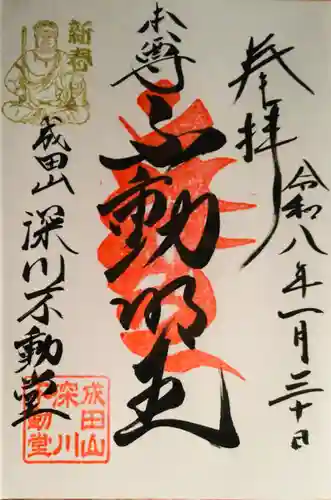 奉拝
令和八年一月三十日
本尊
不動明王
成田山
深川不動堂
成田山
深川
不動堂